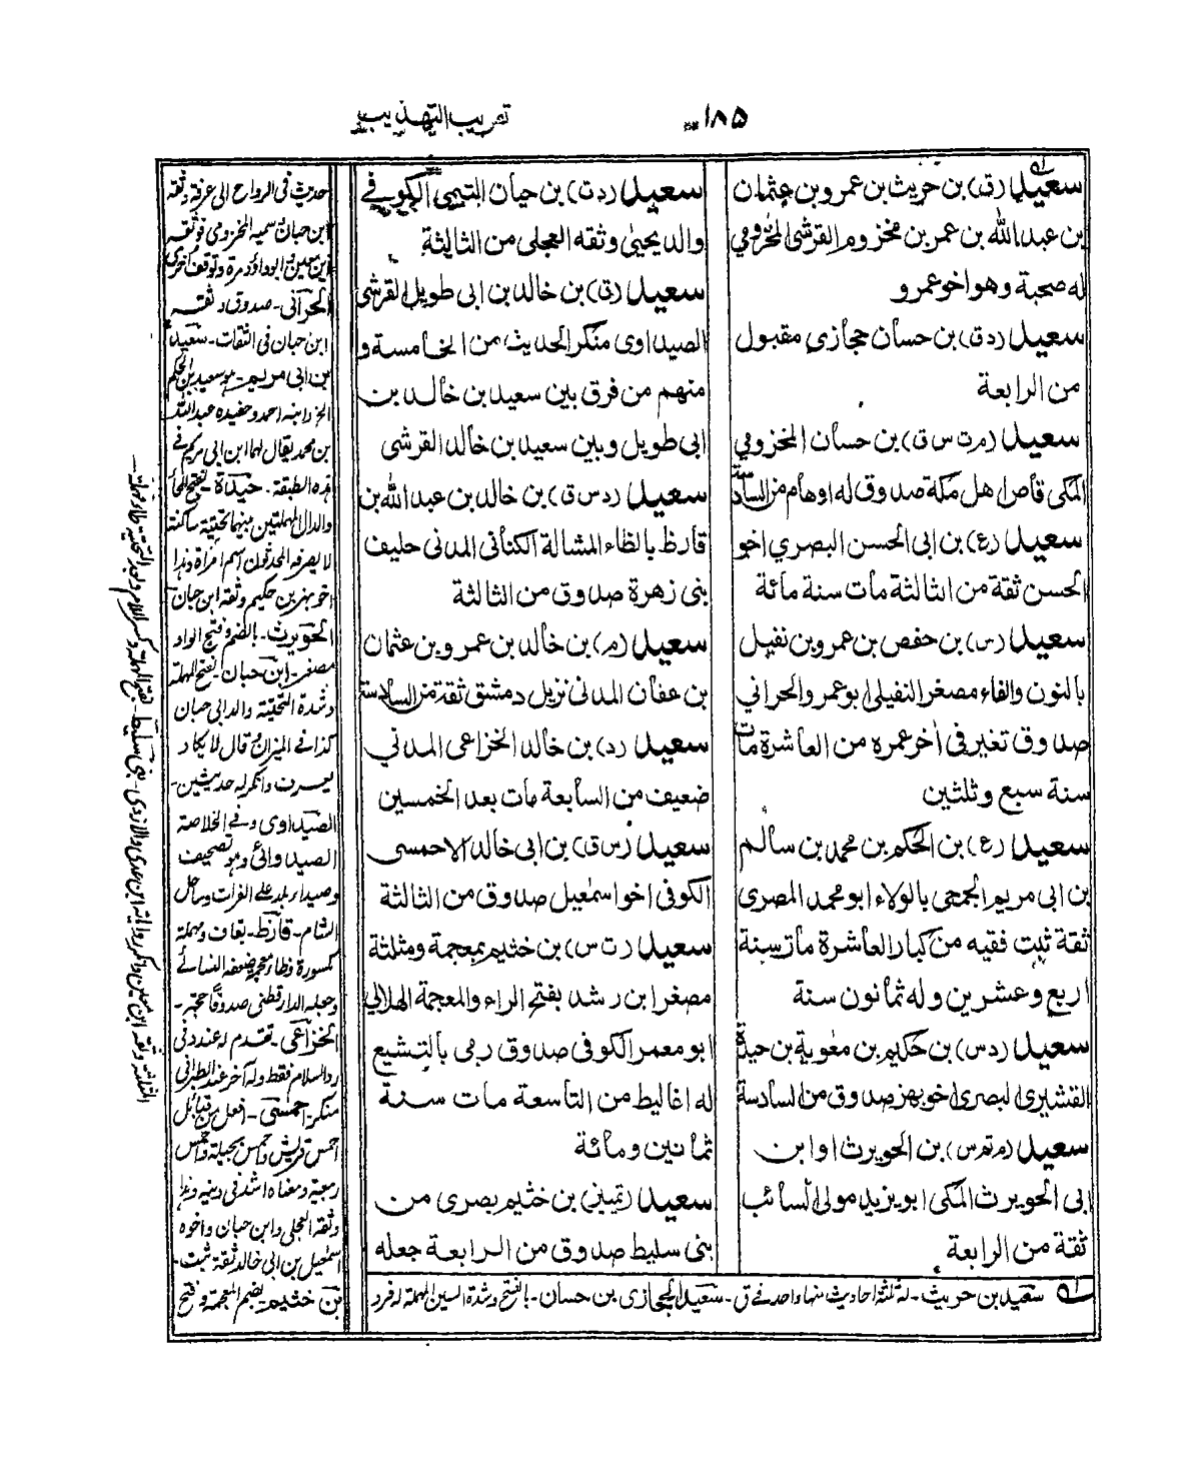 ١٨٥
تقريب التهذيب
سعيد (ق) بن حريث بن عمرو بن عثمان
بن عبدالله بن عمر بن مخزوم القرشي المخزومي
له صحبة وهو اخو عمرو
سعيد (د ق) بن حسان حجازي مقبول
من الرابعة
سعيد (م ت س ق) بن حسان المخزومي
المكي قاص اهل مكة صدوق له اوهام من السادسة
سعيد (ع) بن ابى الحسن البصري اخو
الحسن ثقة من الثالثة مات سنة مائة
سعيد (س) بن حفص بن عمرو بن نفيل
بالنون والفاء مصغر النفيلى ابو عمرو الحراني
صدوق تغير فى اٰخر عمره من العاشرة مات
سنة سبع وثلثين
سعيد (ع) بن الحكم بن محمد بن سالم
بن ابى مريم الجمحي بالولاء ابو محمد المصرى
ثقة ثبت فقيه من كبار العاشرة مات سنة
اربع وعشرين وله ثمانون سنة
سعيد (د س) بن حكيم بن معٰوية بن حيدة
القشيرى البصرى اخو بهز صدوق من السادسة
سعيد (م تم س) بن الحويرث او ابن
ابى الحويرث المكى ابو يزيد مولى السائب
ثقة من الرابعة
سعيد (د ت) بن حيان التيمى الكوفي
والد يحيىٰ وثقه العجلى من الثالثة
سعيد (ق) بن خالد بن ابى طويل القرشى
الصيداوى منكر الحديث من الخامسة و
منهم من فرق بين سعيد بن خالد بن
ابى طويل وبين سعيد بن خالد القرشى
سعيد (د س ق) بن خالد بن عبد الله بن
قارظ بالظاء المشالة الكنانى المدنى حليف
بنى زهرة صدوق من الثالثة
سعيد (م) بن خالد بن عمرو بن عثمان
بن عفان المدنى نزيل دمشق ثقة من السادسة
سعيد (د) بن خالد الخزاعى المدني
ضعيف من السابعة مات بعد الخمسين
سعيد (س ق) بن ابى خالد الاحمسى
الكوفى اخو اسمٰعيل صدوق من الثالثة
سعيد (ت س) بن خثيم بمعجمة ومثلثة
مصغر ابن رشد بفتح الراء والمعجمة الهلالي
ابو معمر الكوفى صدوق رمى بالتشيع
له اغاليط من التاسعة مات سنة
ثمانين ومائة
سعيد (تمييز) بن خثيم بصرى من
بنى سليط صدوق من الرابعة جعله
حديث فى الرواح الى عرفة وثقه
ابن حبان سميه المخزومى فوثقه
ابن معين وابوداؤد مرة وتوقف اخرى
الحرانى - صدوق وثقه
ابن حبان فى الثقات - سعيد
بن ابى مريم هو سعيد بن الحكم
الخ وابنه احمد وحفيده عبدالله
بن محمد يقال لهما ابن ابى مريم في
هذه الطبقة - حيدة بفتح الحاء
والدال المهملتين بينهما تحتية ساكنة
لا يصرفه المحدثون اسم امرأة وهذا
اخو بهز بن حكيم وثقه ابن حبان
الحويرث - بالضم وفتح الواو
مصغر - ابن حبان - بفتح المهملة
وشدة التحتية والد ابى حبان
كذا في الميزان وقال لا يكاد
يعرف وانكر له حديثين -
الصيداوى وفي الخلاصة
الصيدوائى وهو تصحيف
وصيداء بلد على الفرات وساحل
الشام - قارظ - بقاف ومهملة
مكسورة وظاء معجمة ضعفه النسائي
وجعله الدارقطنى صدوقا حجة -
الخزاعى - تقدم له عنده فى
رد السلام فقط وله آخر عند الطبرانى
منكر - احمسى - افعل من قبائل
احمس قريش واحمس بجيلة واحمس
ربيعة ومعناه اشد فى دينه وهذا
وثقه العجلى وابن حبان واخوه
اسمٰعيل بن ابى خالد ثقة ثبت -
بن خثيم - بضم المعجمة وفتح
المثلثة وثقه ابن معين وانكر رواياته ابن عدى والازدى - بنى سليط - بفتح المهملة وكسر اللام وبعد التحتية طاء مهملة -
سعيد بن حريث - له ثلثة احاديث منها واحد في ق - سعيد الحجازى بن حسان - بالفتح وشدة السين المهملة له فرد